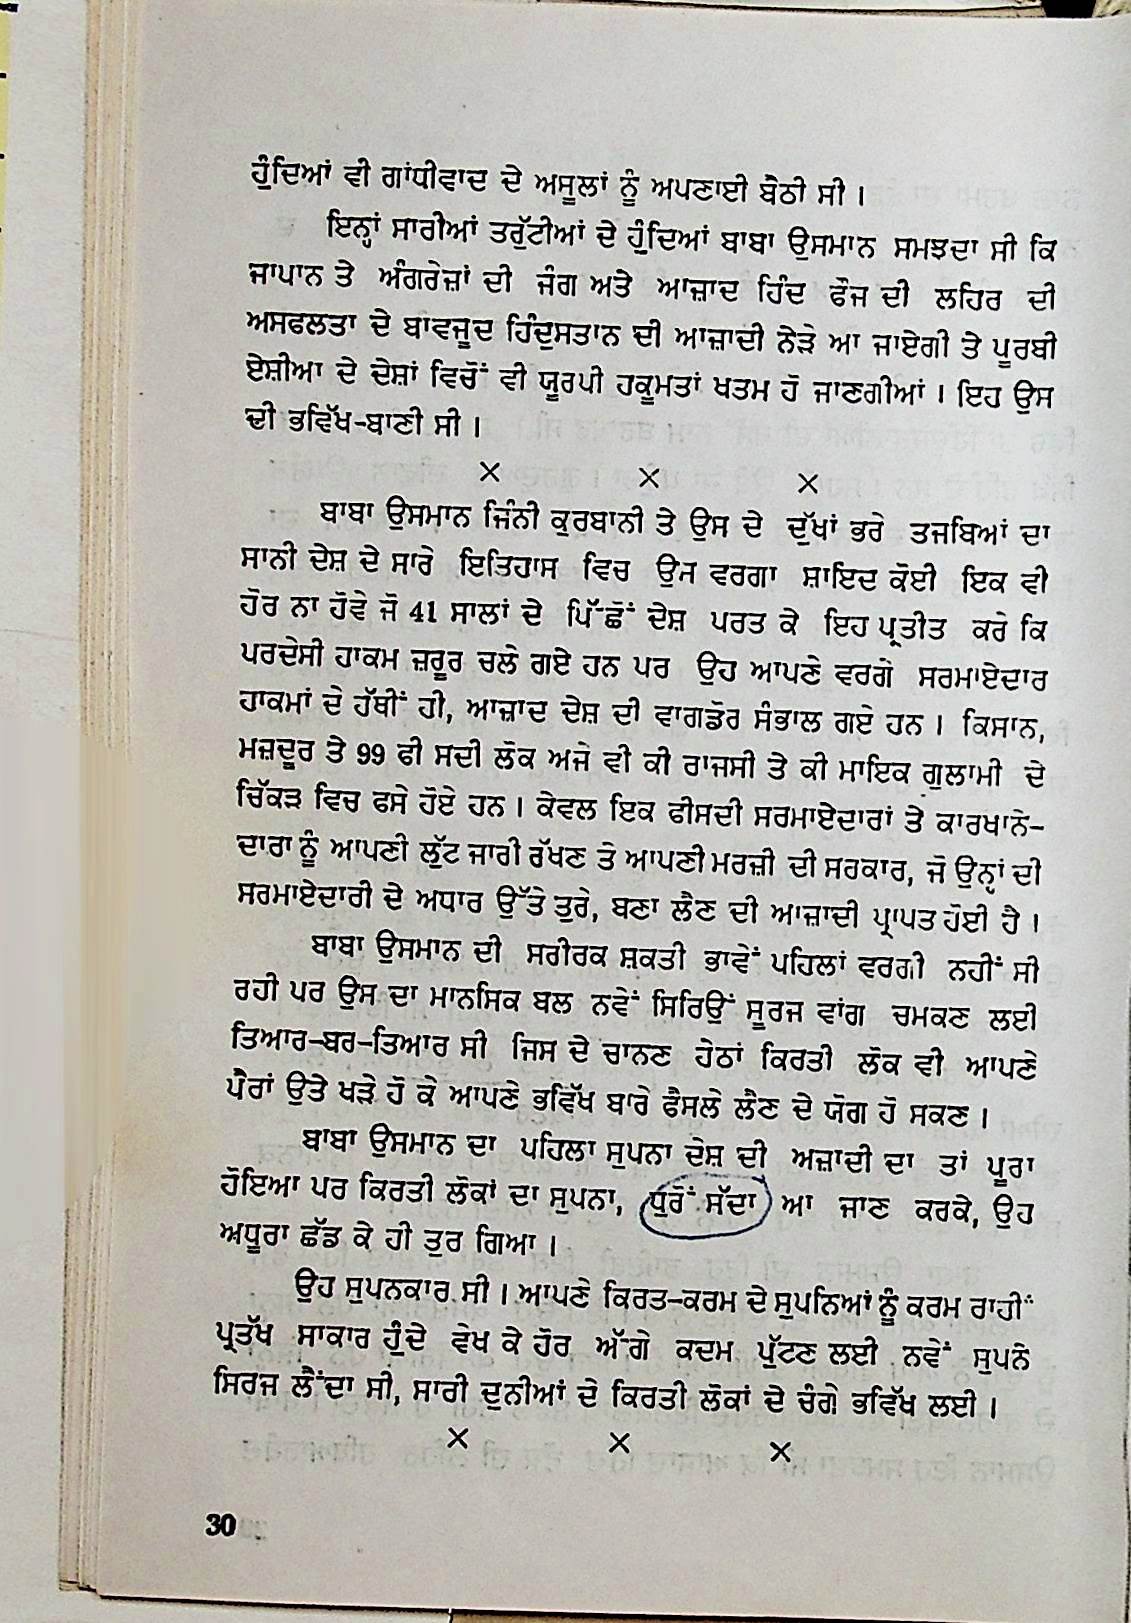 ਹੁੰਦਿਆਂ ਵੀ ਗਾਂਧੀਵਾਦ ਦੇ ਅਸੂਲਾਂ ਨੂੰ ਅਪਣਾਈ ਬੈਠੀ ਸੀ ।
ਇਨ੍ਹਾਂ ਸਾਰੀਆਂ ਤਰੁੱਟੀਆਂ ਦੇ ਹੁੰਦਿਆਂ ਬਾਬਾ ਉਸਮਾਨ ਸਮਝਦਾ ਸੀ ਕਿ
ਜਾਪਾਨ ਤੇ ਅੰਗਰੇਜ਼ਾਂ ਦੀ ਜੰਗ ਅਤੇ ਆਜ਼ਾਦ ਹਿੰਦ ਫੌਜ ਦੀ ਲਹਿਰ ਦੀ
ਅਸਫਲਤਾ ਦੇ ਬਾਵਜੂਦ ਹਿੰਦੁਸਤਾਨ ਦੀ ਆਜ਼ਾਦੀ ਨੇੜੇ ਆ ਜਾਏਗੀ ਤੇ ਪੂਰਬੀ
ਏਸ਼ੀਆ ਦੇ ਦੇਸ਼ਾਂ ਵਿਚੋਂ ਵੀ ਯੂਰਪੀ ਹਕੂਮਤਾਂ ਖਤਮ ਹੋ ਜਾਣਗੀਆਂ । ਇਹ ਉਸ
ਦੀ ਭਵਿੱਖ-ਬਾਣੀ ਸੀ ।
× × ×
ਬਾਬਾ ਉਸਮਾਨ ਜਿੰਨੀ ਕੁਰਬਾਨੀ ਤੇ ਉਸ ਦੇ ਦੁੱਖਾਂ ਭਰੇ ਤਜਬਿਆਂ ਦਾ
ਸਾਨੀ ਦੇਸ਼ ਦੇ ਸਾਰੇ ਇਤਿਹਾਸ ਵਿਚ ਉਸ ਵਰਗਾ ਸ਼ਾਇਦ ਕੋਈ ਇਕ ਵੀ
ਹੋਰ ਨਾ ਹੋਵੇ ਜੋ 41 ਸਾਲਾਂ ਦੇ ਪਿੱਛੋਂ ਦੇਸ਼ ਪਰਤ ਕੇ ਇਹ ਪ੍ਰਤੀਤ ਕਰੇ ਕਿ
ਪਰਦੇਸੀ ਹਾਕਮ ਜ਼ਰੂਰ ਚਲੇ ਗਏ ਹਨ ਪਰ ਉਹ ਆਪਣੇ ਵਰਗੇ ਸਰਮਾਏਦਾਰ
ਹਾਕਮਾਂ ਦੇ ਹੱਥੀਂ ਹੀ, ਆਜ਼ਾਦ ਦੇਸ਼ ਦੀ ਵਾਗਡੋਰ ਸੰਭਾਲ ਗਏ ਹਨ । ਕਿਸਾਨ,
ਮਜ਼ਦੂਰ ਤੇ 99 ਫੀ ਸਦੀ ਲੋਕ ਅਜੇ ਵੀ ਕੀ ਰਾਜਸੀ ਤੇ ਕੀ ਮਾਇਕ ਗੁਲਾਮੀ ਦੇ
ਚਿੱਕੜ ਵਿਚ ਫਸੇ ਹੋਏ ਹਨ । ਕੇਵਲ ਇਕ ਫੀਸਦੀ ਸਰਮਾਏਦਾਰਾਂ ਤੇ ਕਾਰਖਾਨੇ-
ਦਾਰਾ ਨੂੰ ਆਪਣੀ ਲੁੱਟ ਜਾਰੀ ਰੱਖਣ ਤੇ ਆਪਣੀ ਮਰਜ਼ੀ ਦੀ ਸਰਕਾਰ, ਜੋ ਉਨ੍ਹਾਂ ਦੀ
ਸਰਮਾਏਦਾਰੀ ਦੇ ਅਧਾਰ ਉੱਤੇ ਤੁਰੇ, ਬਣਾ ਲੈਣ ਦੀ ਆਜ਼ਾਦੀ ਪ੍ਰਾਪਤ ਹੋਈ ਹੈ ।
ਬਾਬਾ ਉਸਮਾਨ ਦੀ ਸਰੀਰਕ ਸ਼ਕਤੀ ਭਾਵੇਂ ਪਹਿਲਾਂ ਵਰਗੀ ਨਹੀਂ ਸੀ
ਰਹੀ ਪਰ ਉਸ ਦਾ ਮਾਨਸਿਕ ਬਲ ਨਵੇਂ ਸਿਰਿਉਂ ਸੂਰਜ ਵਾਂਗ ਚਮਕਣ ਲਈ
ਤਿਆਰ-ਬਰ-ਤਿਆਰ ਸੀ ਜਿਸ ਦੇ ਚਾਨਣ ਹੇਠਾਂ ਕਿਰਤੀ ਲੋਕ ਵੀ ਆਪਣੇ
ਪੈਰਾਂ ਉਤੇ ਖੜੇ ਹੋ ਕੇ ਆਪਣੇ ਭਵਿੱਖ ਬਾਰੇ ਫੈਸਲੇ ਲੈਣ ਦੇ ਯੋਗ ਹੋ ਸਕਣ ।
ਬਾਬਾ ਉਸਮਾਨ ਦਾ ਪਹਿਲਾ ਸੁਪਨਾ ਦੇਸ਼ ਦੀ ਅਜ਼ਾਦੀ ਦਾ ਤਾਂ ਪੂਰਾ
ਹੋਇਆ ਪਰ ਕਿਰਤੀ ਲੋਕਾਂ ਦਾ ਸੁਪਨਾ, ਧੁਰੋਂ ਸੱਦਾ ਆ ਜਾਣ ਕਰਕੇ, ਉਹ
ਅਧੂਰਾ ਛੱਡ ਕੇ ਹੀ ਤੁਰ ਗਿਆ ।
ਉਹ ਸੁਪਨਕਾਰ ਸੀ । ਆਪਣੇ ਕਿਰਤ-ਕਰਮ ਦੇ ਸੁਪਨਿਆਂ ਨੂੰ ਕਰਮ ਰਾਹੀਂ
ਪ੍ਰਤੱਖ ਸਾਕਾਰ ਹੁੰਦੇ ਵੇਖ ਕੇ ਹੋਰ ਅੱਗੇ ਕਦਮ ਪੁੱਟਣ ਲਈ ਨਵੇਂ ਸੁਪਨੇ
ਸਿਰਜ ਲੈਂਦਾ ਸੀ, ਸਾਰੀ ਦੁਨੀਆਂ ਦੇ ਕਿਰਤੀ ਲੋਕਾਂ ਦੇ ਚੰਗੇ ਭਵਿੱਖ ਲਈ ।
× × ×
30